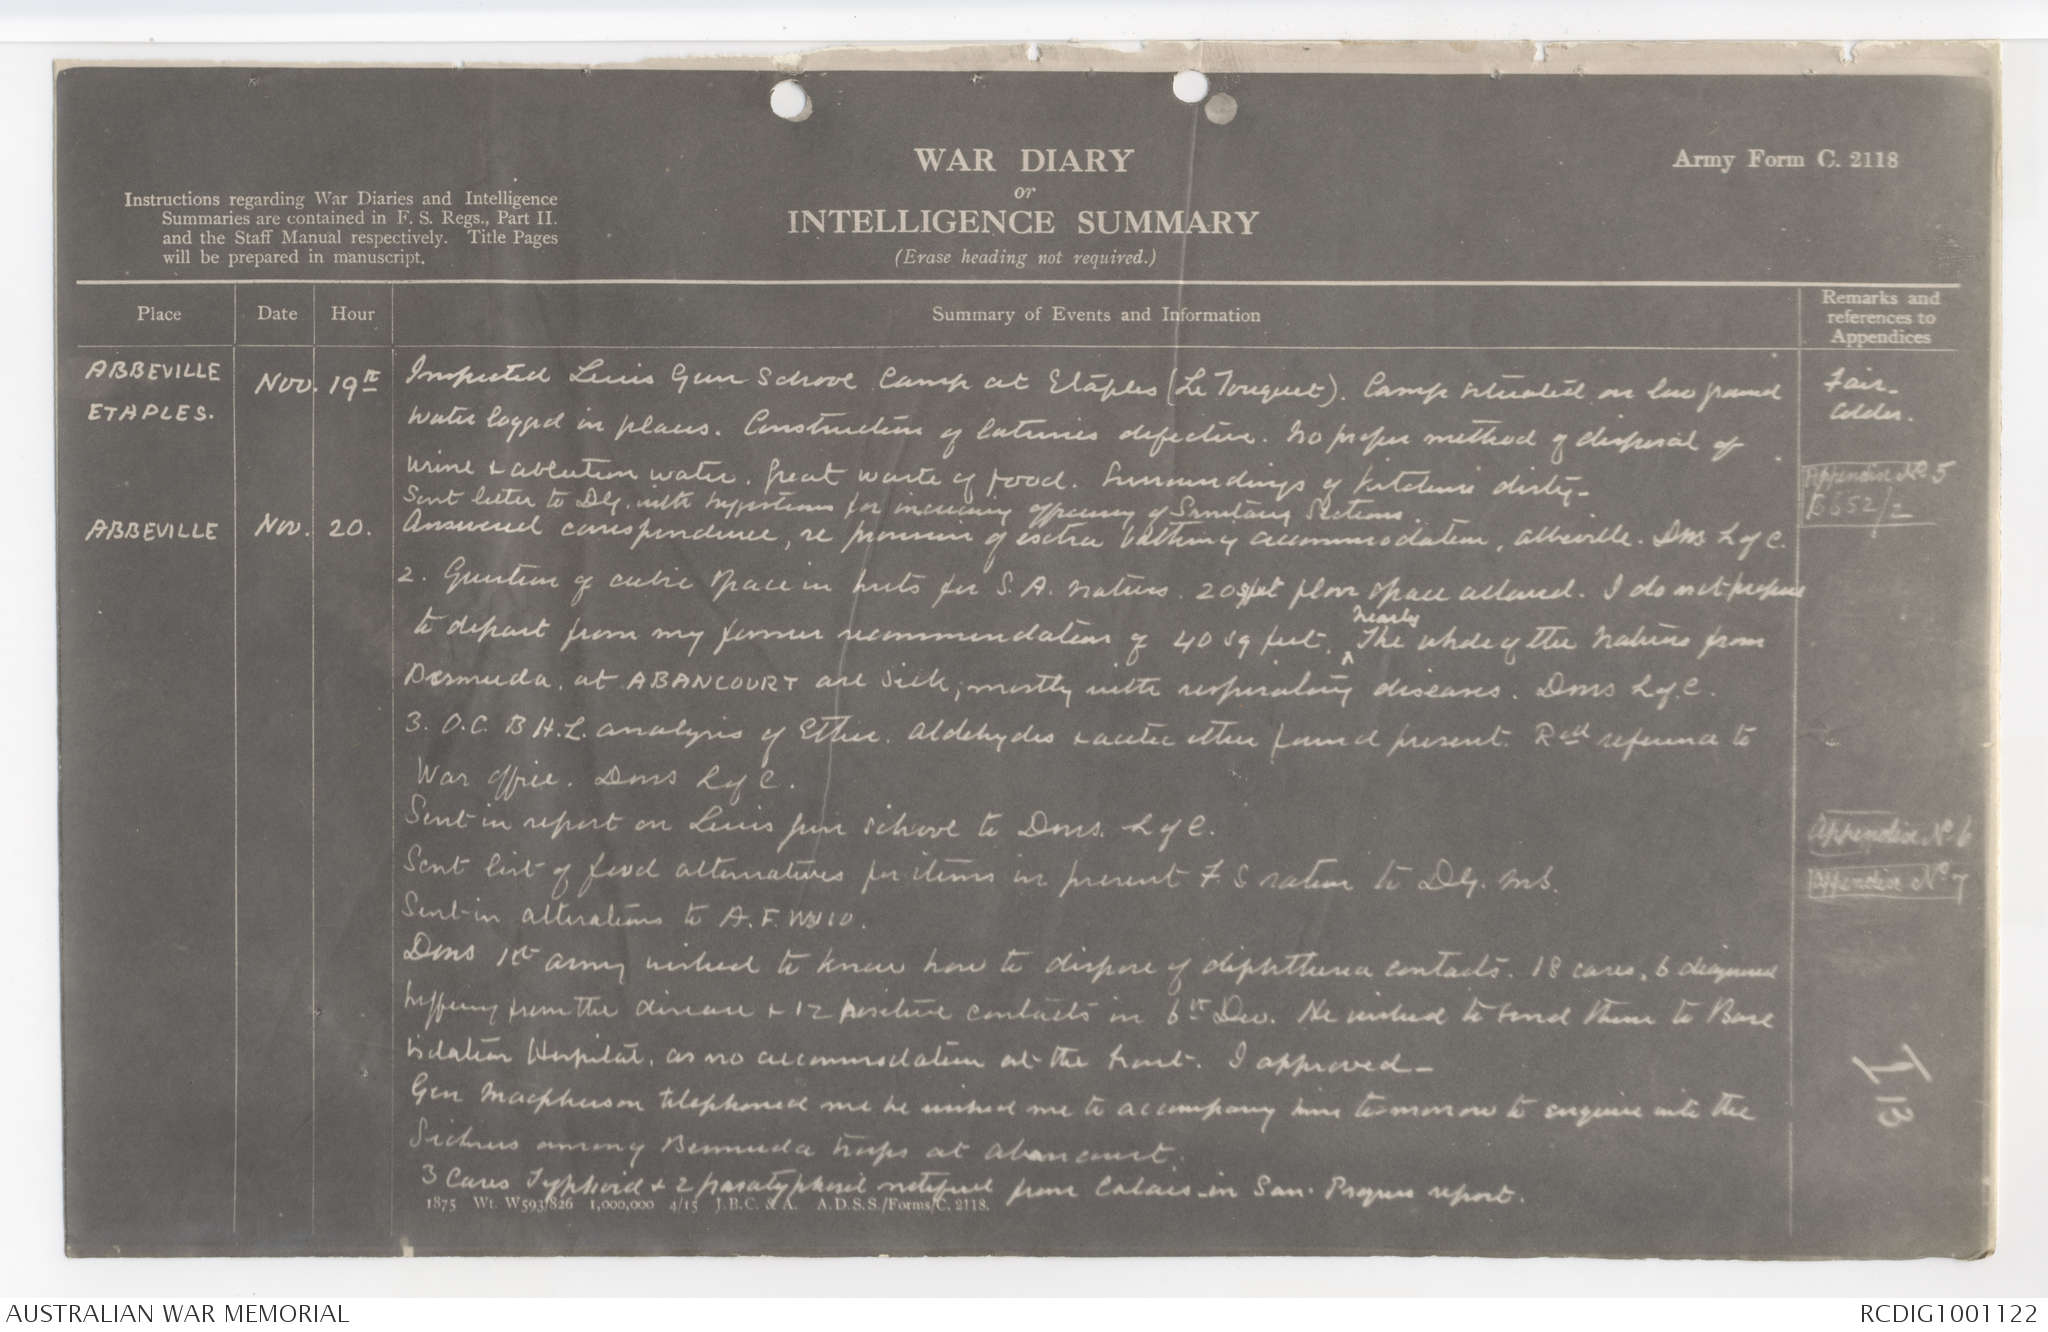 WAR DIARY
or
INTELLIGENCE SUMMARY
(Erase heading not required.)
Army Form C. 2118
Instructions regarding War Diaries and Intelligence
Summaries are contained in F. S. Regs., Part II.
and the Staff Manual respectively. Title Pages
will be prepared in manuscript.
Place Date Hour Summary of Events and Information Remarks and references to Appendices
ABBEVILLE Nov. 19th Inspected Lewis Gun School Camp at Etaples (Le Touquet). Camp situated on low ground Fair-
ETAPLES. water logged in places. Construction of latrines defective. No proper method of disposal of colder.
urine & ablution water. Great waste of food. Surroundings of kitchens dirty- Appendix No 5
Sent letter to DG. with suggestions for increasing efficiency of Sanitary Sections 6652/2
ABBEVILLE Nov. 20. Answered correspondence, re provision of extra bathing accommodation, Abbeville. Dms L of C.
2. Question of cubic space in huts for S. A. natives. 20 sq feet floor space allowed. I do not propose
to depart from my former recommendation of 40 sq feet. Nearly The whole of the Natives from
Bermuda, at ABANCOURT are sick, mostly with respiratory diseases. Dms L of C.
3. O.C. B H.L. analysis of Ether. Aldehydes & acetic ether found present. Red reference to
War office. Dms L of C.
Sent in report on Lewis gun school to Dms. L of C. Appendix No 6
Sent list of food alternatives for items in present F. S ration to DG. ms. Appendix No 7
Sent in alterations to A. F. W3110.
Dms 1st army wished to know how to dispose of diphtheria contacts. 18 cases, 6 diagnosed
suffering from the disease & 12 positive contacts in 6th Div. He wished to send them to Base
isolation Hospital, as no accommodation at the front. I approved-
Gen Macpherson telephoned me he wished me to accompany him tomorrow to enquire into the
Sickness among Bermuda troops at Abancourt.
3 Cases Typhoid & 2 paratyphoid notified from Calais in San. Progress report.
1875 Wt. W593/826 1,000,000 4/15 J.B.C. & A. A.D.S.S./Forms/C. 2118.
AUSTRALIAN WAR MEMORIAL
RCDIG1001122